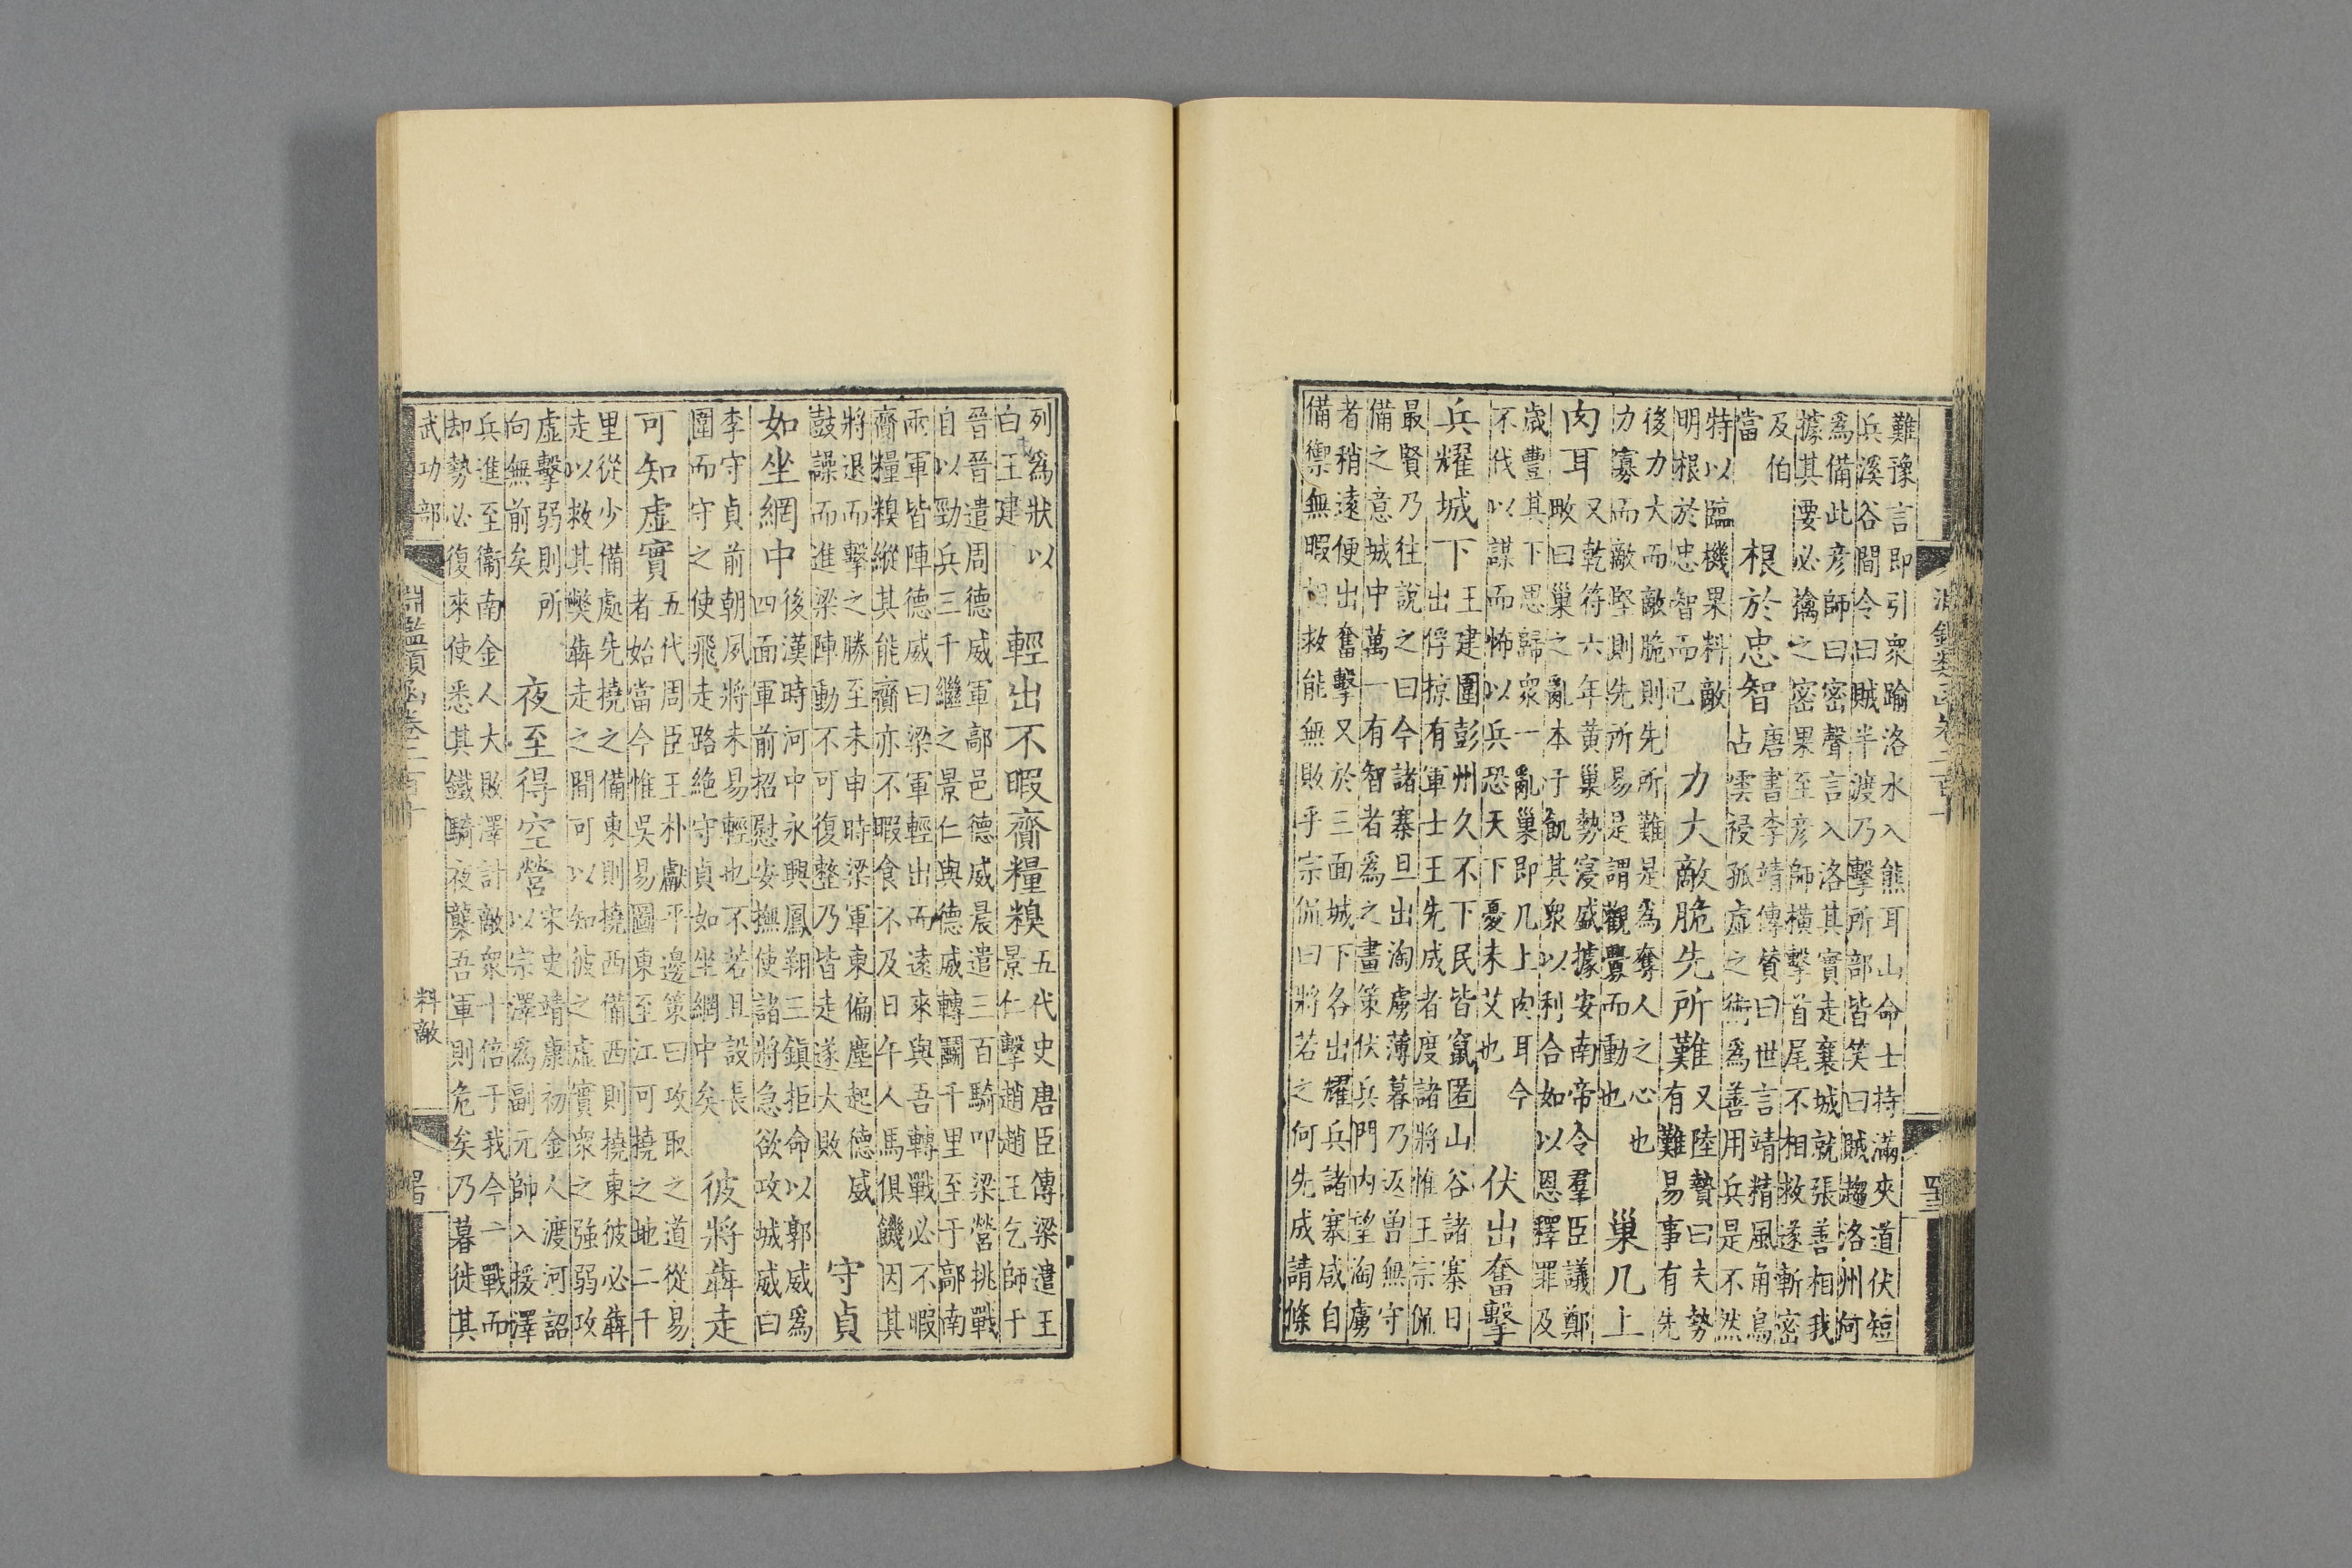 難豫言即引衆踰洛水入熊耳山命士持滿夾道伏短
兵溪谷間令曰賊半渡乃擊所部皆笑曰賊趨洛州何
爲備此彥師曰密聲言入洛其實走襄城就張善相我
據其要必擒之密果至彥師橫擊首尾不相救遂斬密
及伯
當
根於忠智
唐書李靖傳贊曰世言靖精風角鳥
占雲祲孤虛之術爲善用兵是不然
特以臨機果料敵
明根於忠智而已
力大敵脆先所難
又陸贄曰夫勢
有難易事有先
後力大而敵脆則先所難是爲奪人之心也
力寡而敵堅則先所易是謂觀釁而動也
巢几上
肉耳
又乾符六年黃巢勢寖盛據安南帝令羣臣議鄭
畋曰巢之亂本于飢其衆以利合如以恩釋罪及
歲豐其下思歸衆一亂巢即几上肉耳今
不伐以謀而怖以兵恐天下憂未艾也
伏出奮擊
兵耀城下
王建圍彭州久不下民皆竄匿山谷諸寨日
出俘掠有軍士王先成者度諸將惟王宗侃
最賢乃往說之曰今諸寨旦出淘虜薄暮乃返曾無守
備之意城中萬一有智者爲之畫策伏兵門内望淘虜
者稍遠便出奮擊又於三面城下各出耀兵諸寨咸自
備禦無暇相救能無敗乎宗侃曰將若之何先成請條
列爲狀以
白王建
輕出不暇齎糧糗
五代史唐臣傳梁遣王
景仁擊趙趙王乞師于
晉晉遣周德威軍鄗邑德威晨遣三百騎叩梁營挑戰
自以勁兵三千繼之景仁與德威轉鬭千里至于鄗南
兩軍皆陣德威曰梁軍輕出而遠來與吾轉戰必不暇
齎糧糗縱其能齎亦不暇食不及日午人馬俱饑因其
將退而擊之勝至未申時梁軍東偏塵起德威
鼓譟而進梁陣動不可復整乃皆走遂大敗
守貞
如坐網中
後漢時河中永興鳳翔三鎮拒命以郭威爲
四面軍前招慰安撫使諸將急欲攻城威曰
李守貞前朝夙將未易輕也不若且設長
圍而守之使飛走路絕守貞如坐網中矣
彼將犇走
可知虛實
五代周臣王朴獻平邊策曰攻取之道從易
者始當今惟吳易圖東至江可撓之地二千
里從少備處先撓之備東則撓西備西則撓東彼必犇
走以救其弊犇走之間可以知彼之虛實衆之強弱攻
虛擊弱則所
向無前矣
夜至得空營
宋史靖康初金人渡河詔
以宗澤爲副元帥入援澤
兵進至衞南金人大敗澤計敵衆十倍于我今一戰而
却勢必復來使悉其鐵騎夜襲吾軍則危矣乃暮徙其
武功部
淵鑑類函卷二百十
料敵